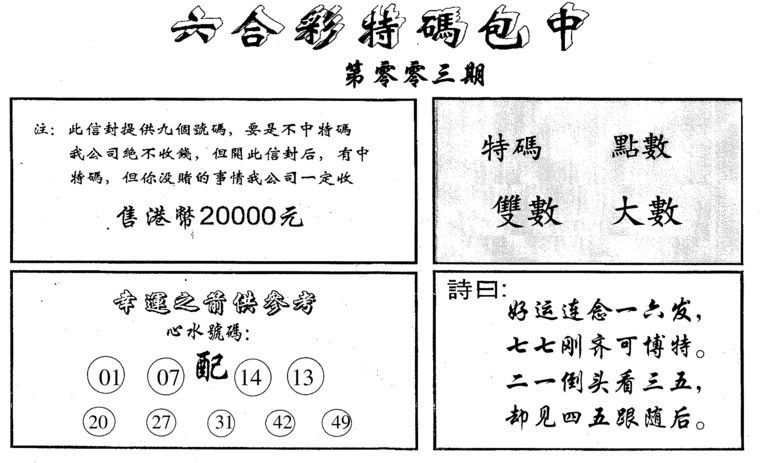 六合彩特碼包中
第零零三期
注：此信封提供九個號碼，要是不中特碼
我公司絶不收錢，但開此信封后，有中
特碼，但你没賭的事情我公司一定收
售港幣20000元
特碼 點數
雙數 大數
幸運之箭供參考
心水號碼：
01 07 配 14 13
20 27 31 42 49
詩曰：
好运连念一六发，
七七刚齐可博特。
二一倒头看三五，
却见四五跟随后。